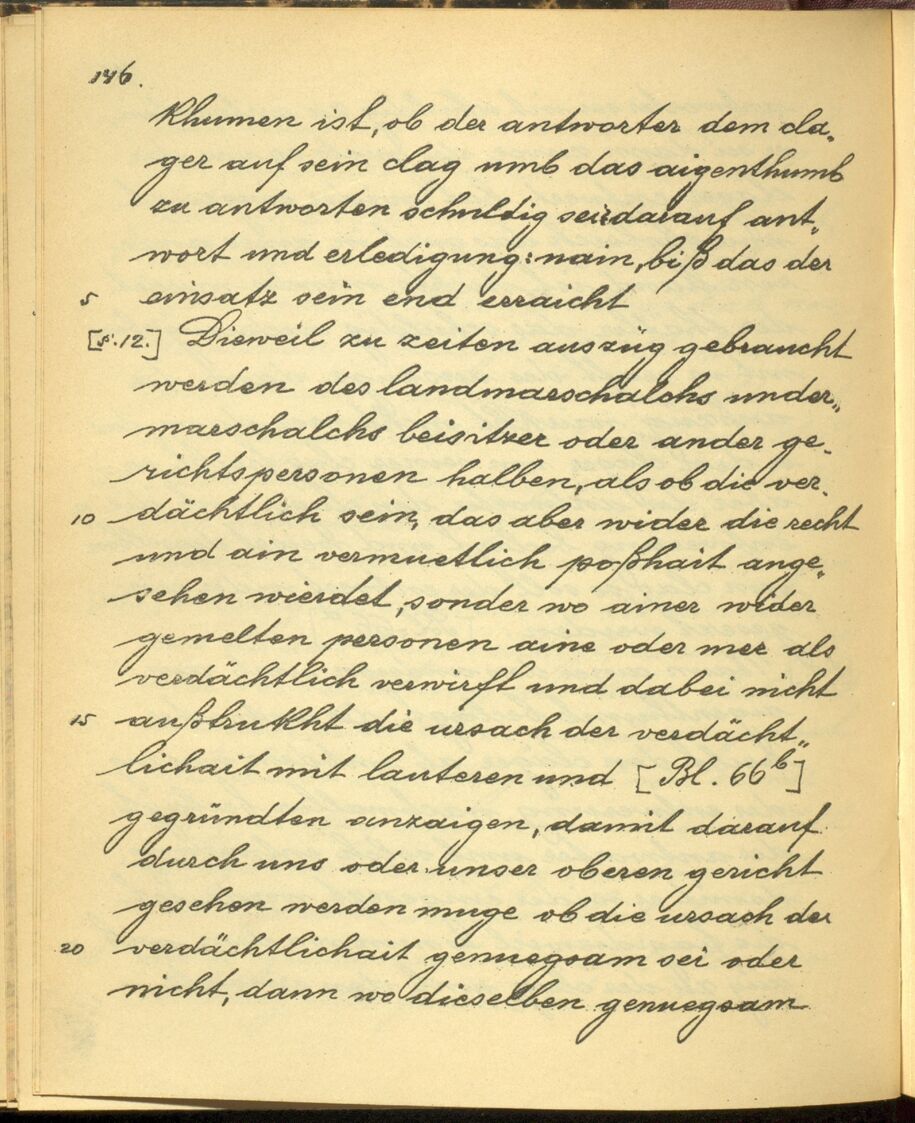 146.
khumen ist, ob der antworter dem cla„
ger auf sein clag umb das aigenthumb
zu antworten schuldig sei: darauf ant„
wort und erledigung: nain, biß das der
5 einsatz sein end erraicht
[S. 12.] Dieweil zu zeiten auszüg gebraucht
werden des landmarschalchs under„
marschalchs beisitzer oder ander ge-
richtspersonen halben, als ob die ver-
10 dächtlich sein, das aber wider die recht
und ain vermuetlich poßhait ange„
sehen wierdet, sonder wo ainer wider
gemelten personen aine oder mer als
verdächtlich verwirft und dabei nicht
15 außtrukht die ursach der verdächt„
lichait mit lauteren und [Bl. 66b]
gegründten anzaigen, damit darauf
durch uns oder unser oberen gericht
gesehen werden muge ob die ursach der
20 verdächtlichait genuegsam sei oder
nicht, dann wo dieselben genuegsam